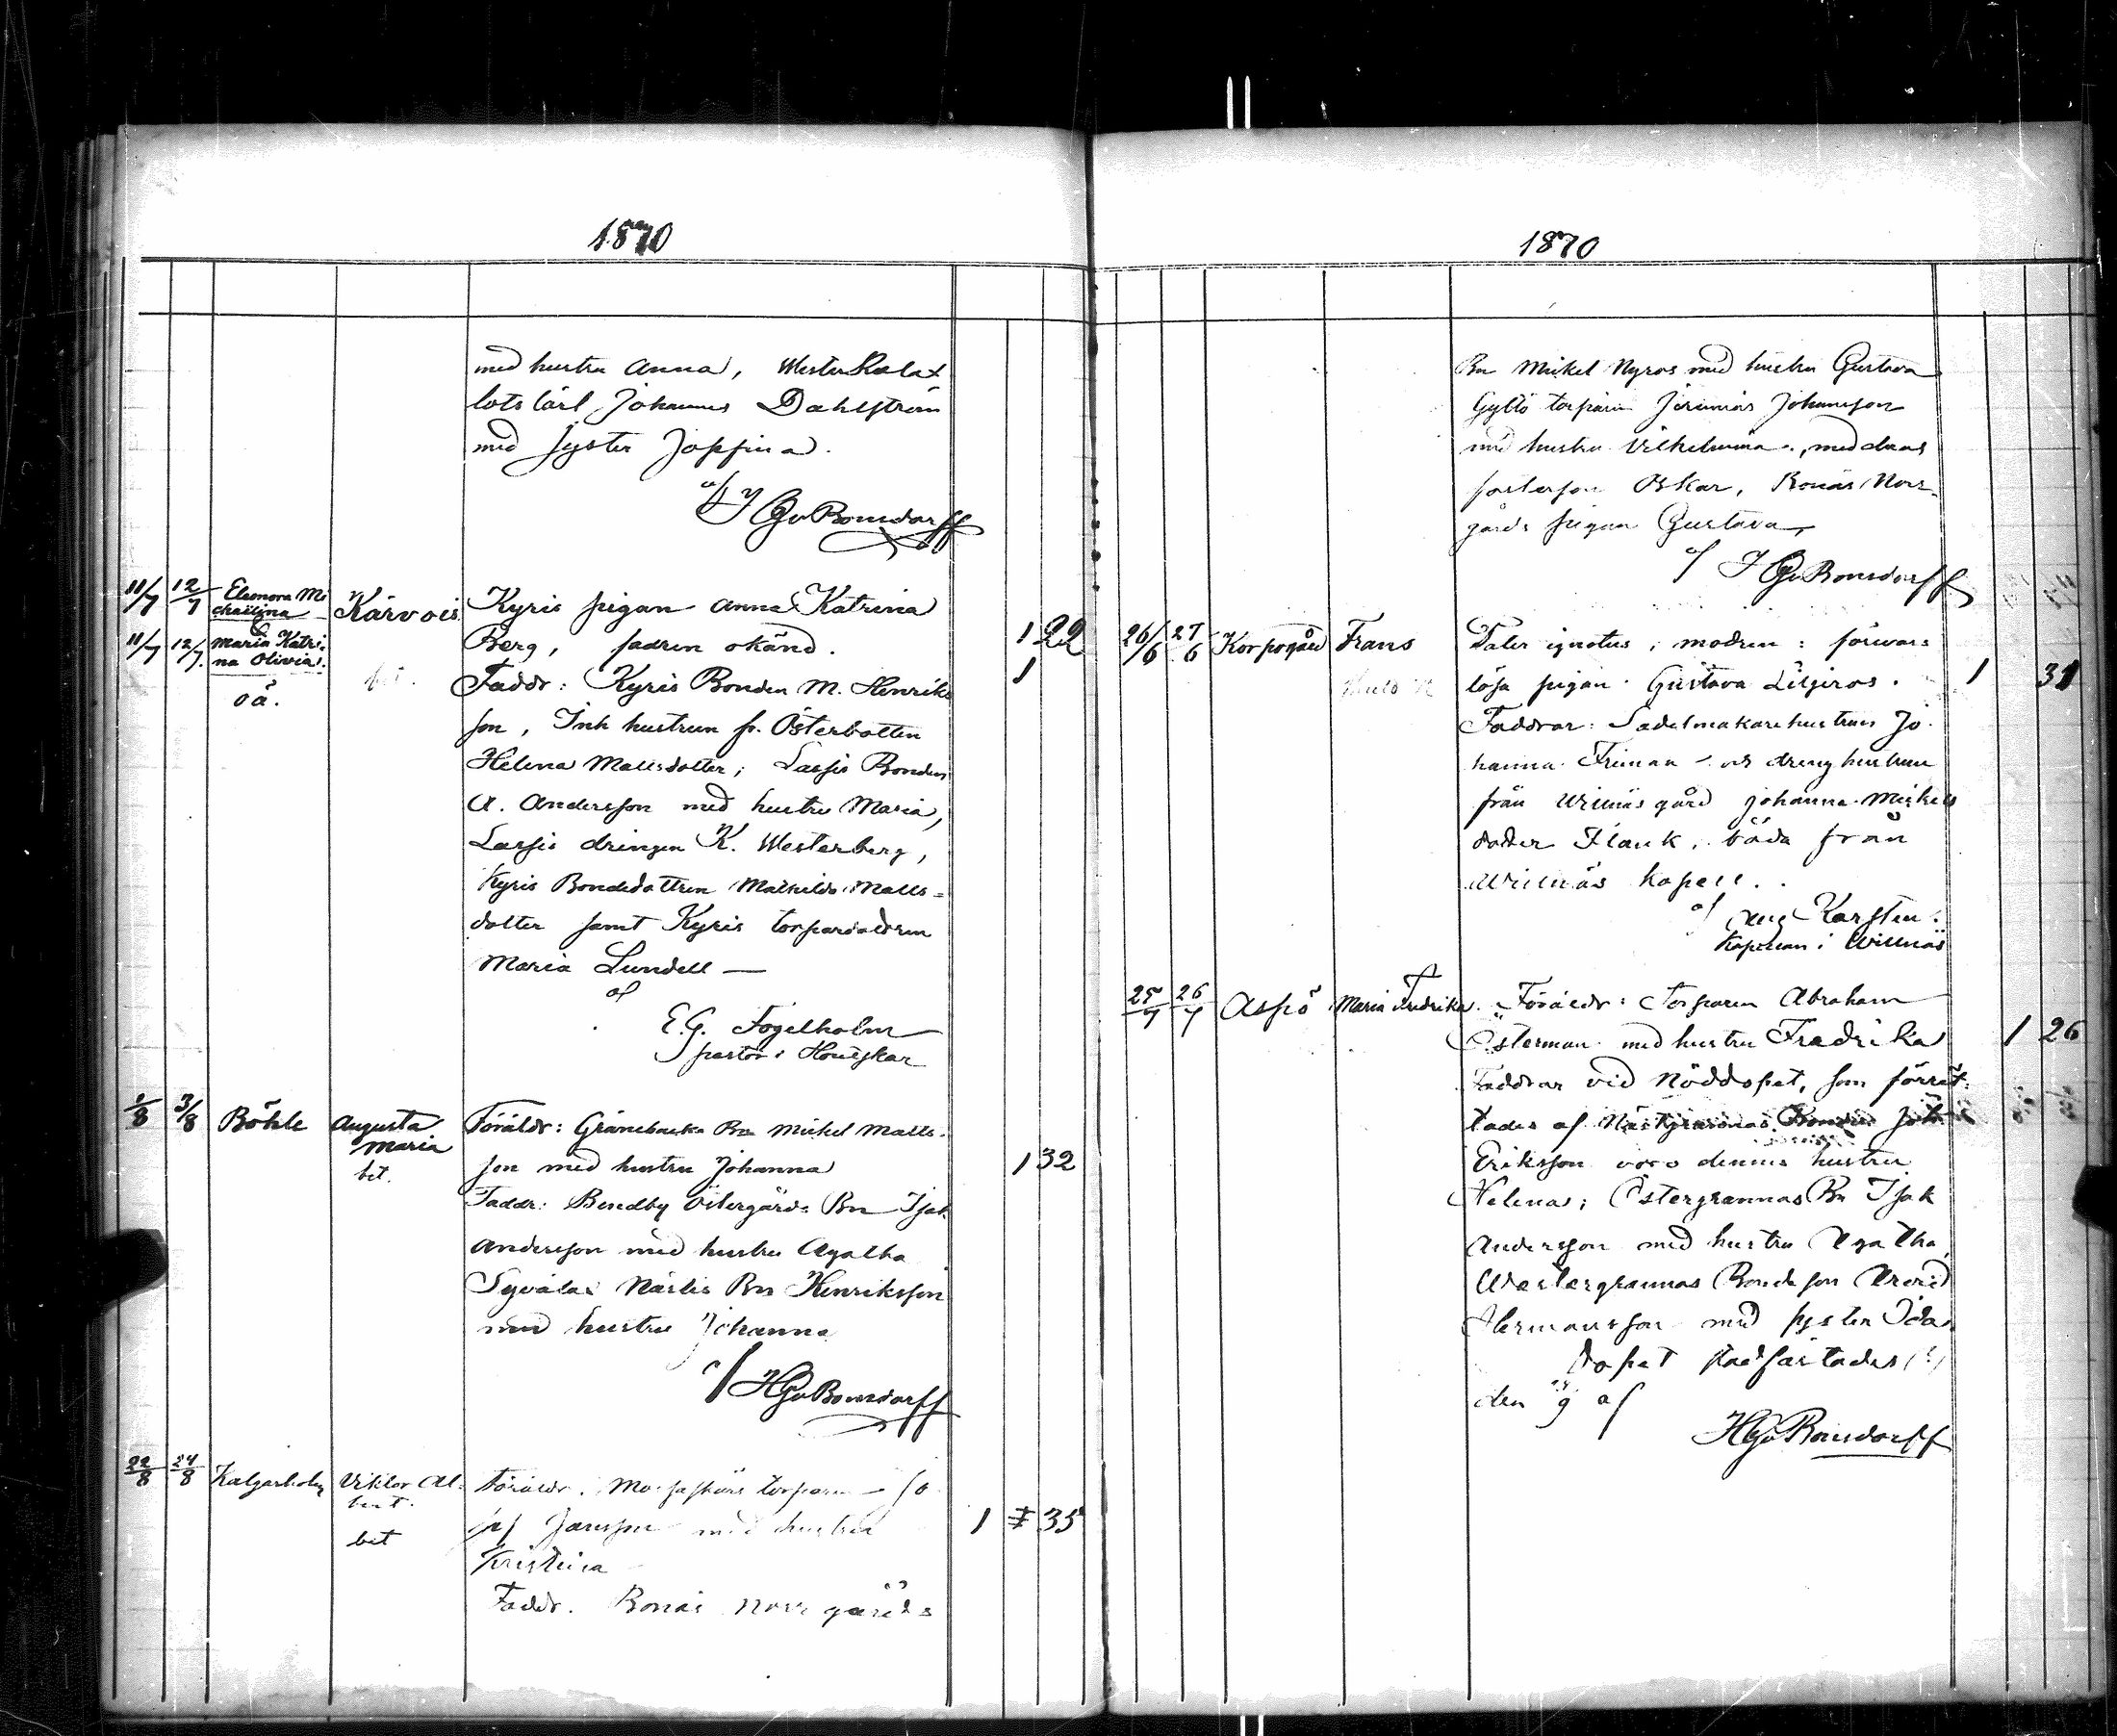 1870
med hustru Anna, Westerkalax
lots lärl Johannes Dahlström
med syster Josefina.
af HGvBonsdorff
11/7 12/7 Eleonora Mi
chailina Kärvois Kyris pigan Anna Katrina
&
11/7 12/7 Maria Katri-
na Olivia. Berg, fadren okänd. 1 22
oä. Faddr: Kyris Bonden M. Henriks 1
son, Inh hustrun fr. Österbotten
Helena Mattsdotter; Lassis Bonden
A. Andersson med hustru Maria,
Lassis drängen K. Westerberg,
Kyris Bondedottren Mathilda Matts=
dotter samt Kyris
Maria Lundell —
af
E.G. Fogelholm
pastor i Houtskär
/8 3/8 Böhle Augusta
Maria
bet. Föräldr: Gränebacka Bn Mickel Matts-
son med hustru Johanna 1 32
Faddr: Bendby Östergårds Bn Isak
Andersson med hustru Agatha
Syvälax Närtis Bn Henriksson
med hustru Johanna
af HGvBonsdorff
22/8 24/8 Kalgarholm Viktor Al-
bert.
bet Föräldr. torparen Jo
sef Jansson med hustru 1 35
Kristina
Faddr. Bonäs Norrgårds
1870
Bn Mickel Nyros med hustru Gustava
Gyltö torparen Jeremias Johansson
med hustru Vilhelmina, med deras
fosterson Oskar, Bonäs Norr-
gårds pigan Gustava,
af HGvBonsdorff
26/6 27/6 Korpogård Frans Pater ignotus, modren: förvars
lösa pigan Gustava Liljeros. 1 31
Faddrar: Sadelmakarehustrun Jo-
hanna Friman och dräng hustrun
från Willnäs gård Johanna Mickels
dotter Flank, båda från
Willnäs kapell.
af Aug Karsten.
Kapellan i Willnäs
25/7 26/7 Aspö Maria Fredrika. Föräldr: Torparen Abraham
Österman med hustru Fredrika 1 26
Faddrar vid Nöddopet, som förrät-
tades af Bonden Joh
Eriksson voro dennes hustru
Helena; Östergrannas Bn Isak
Andersson med hustru Agatha,
Westergrannas Bondeson Arvid
Hermansson med syster Ida.
Dopet stadfästades (!)
den af
HGvBonsdorff